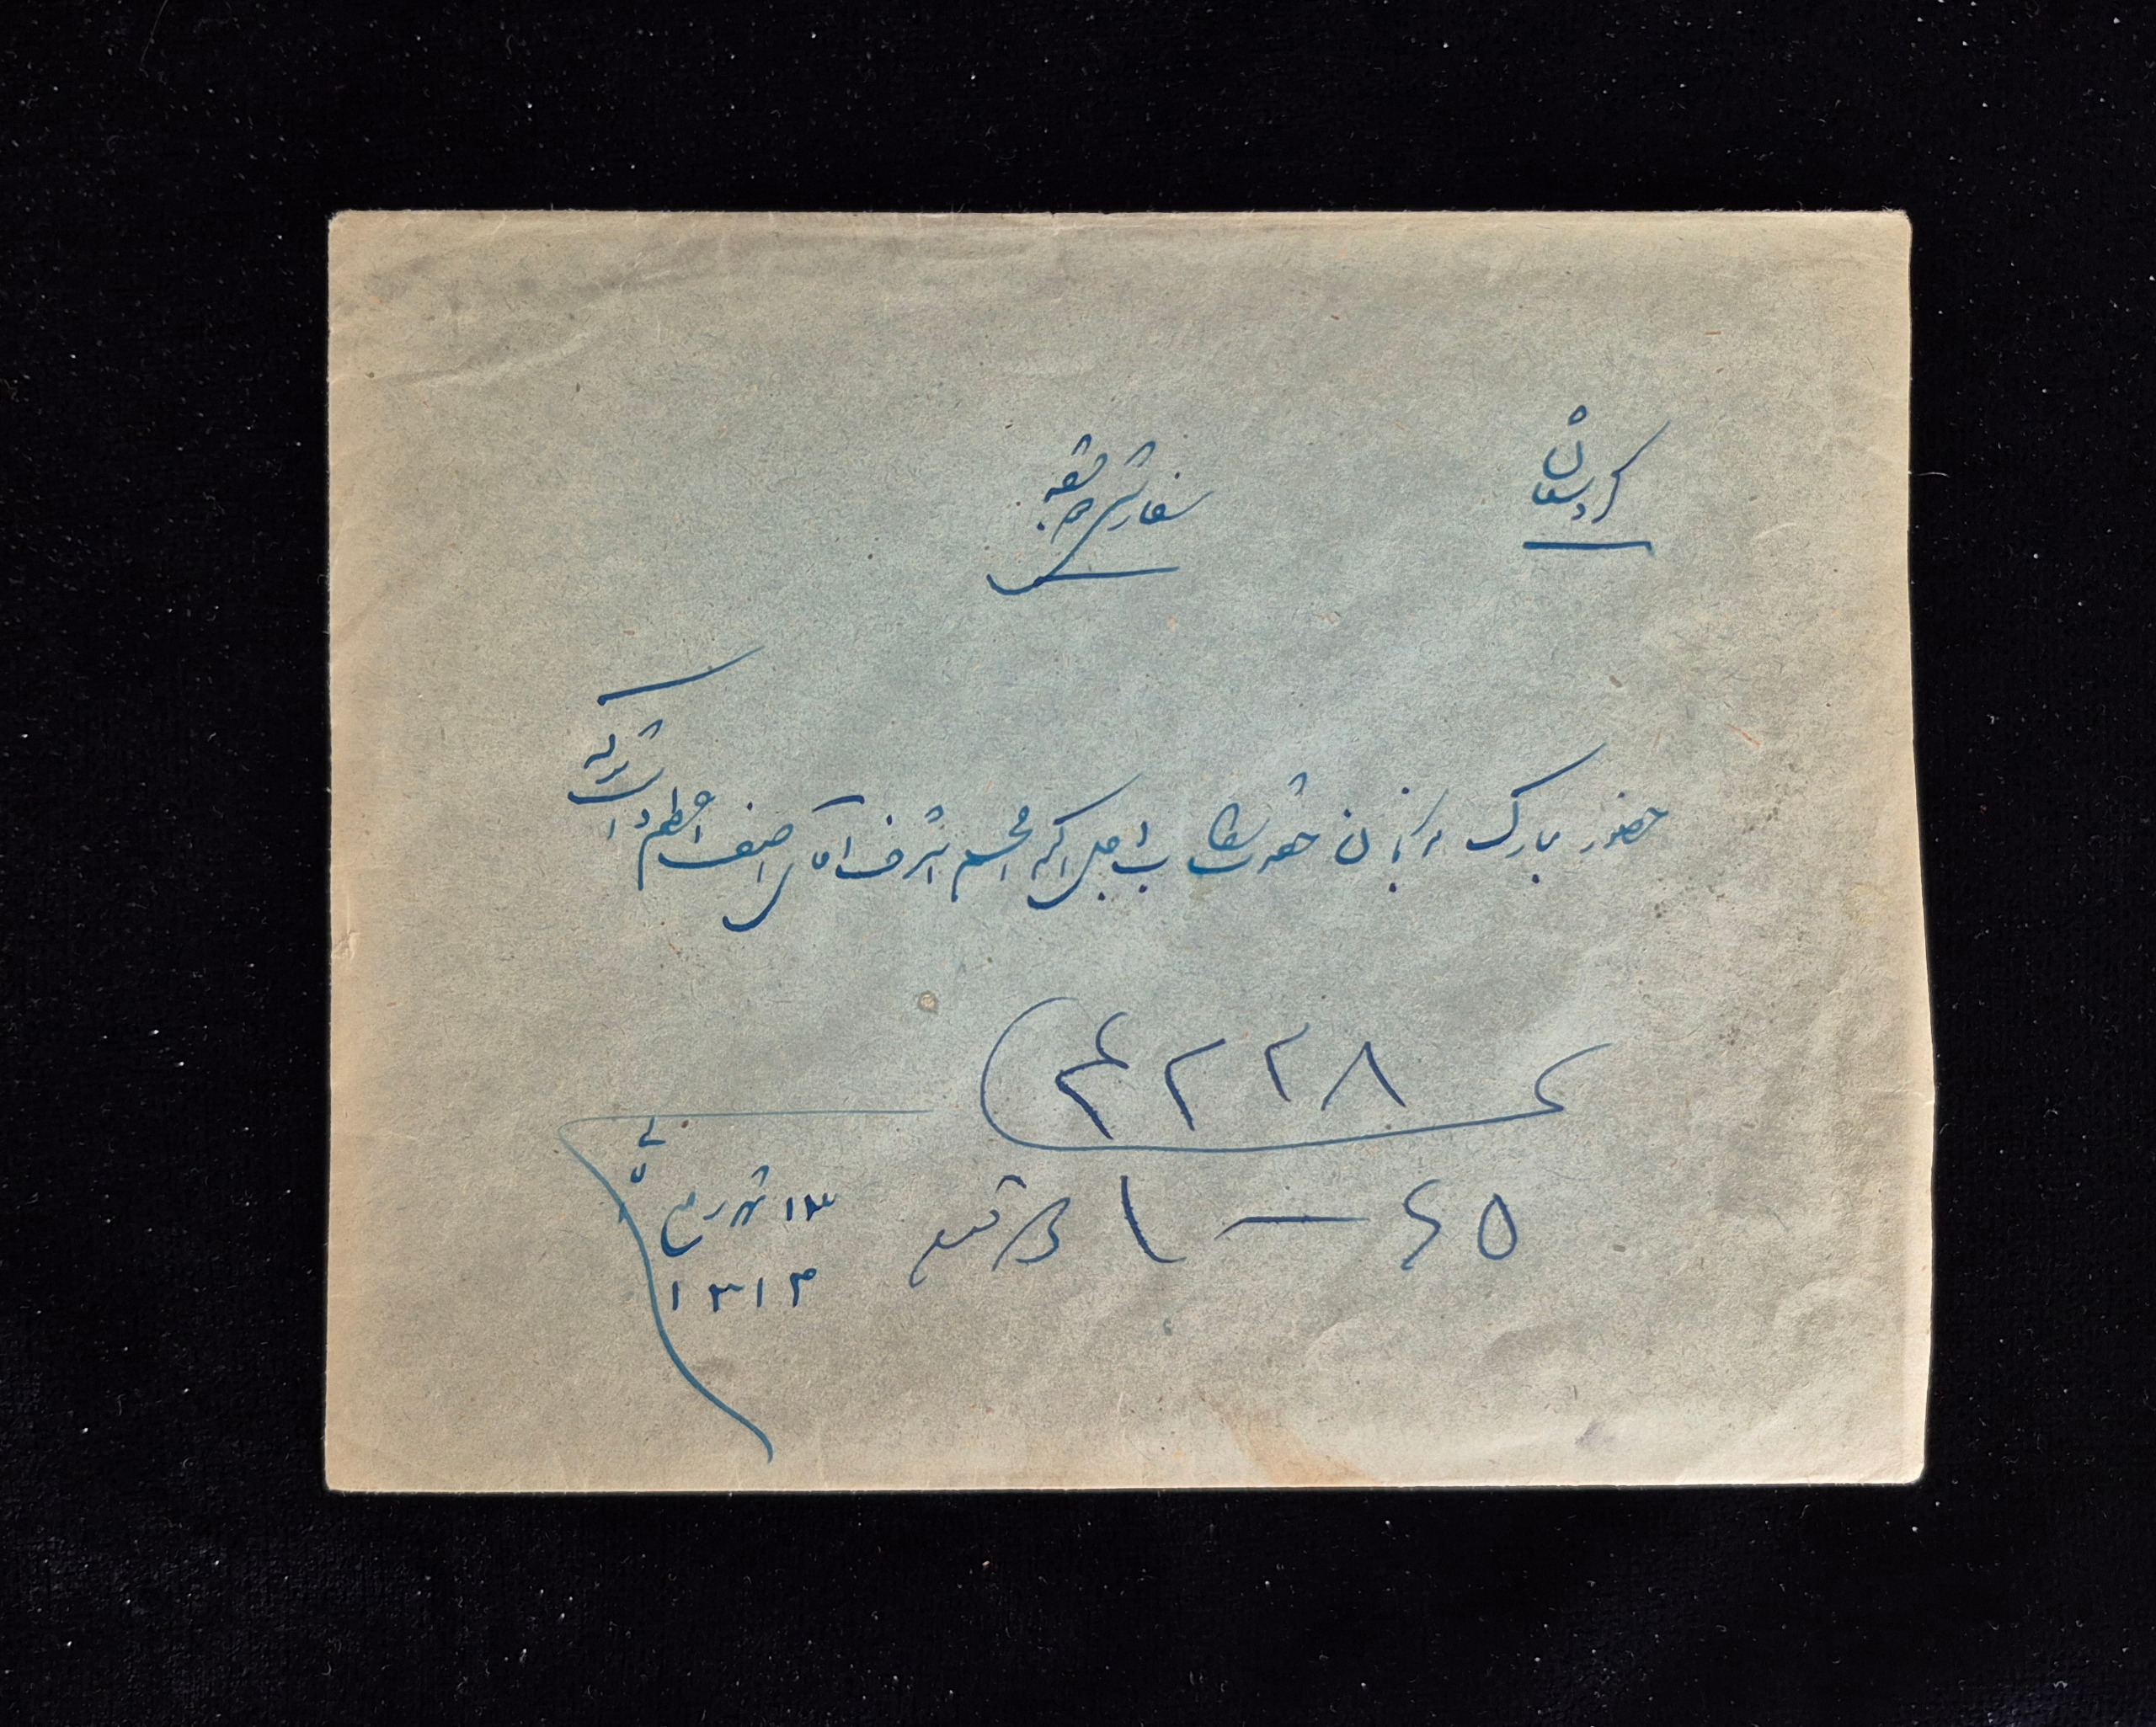 کردستان
سفارشی دو قبضه
حضور مبارک بندگان حضرت مستطاب اجل اکرم افخم اشرف آقای آصف اعظم دام شوکته
۴۲۲۸
۶۵ — ۱
۱۳ شهریور
۱۳۱۴